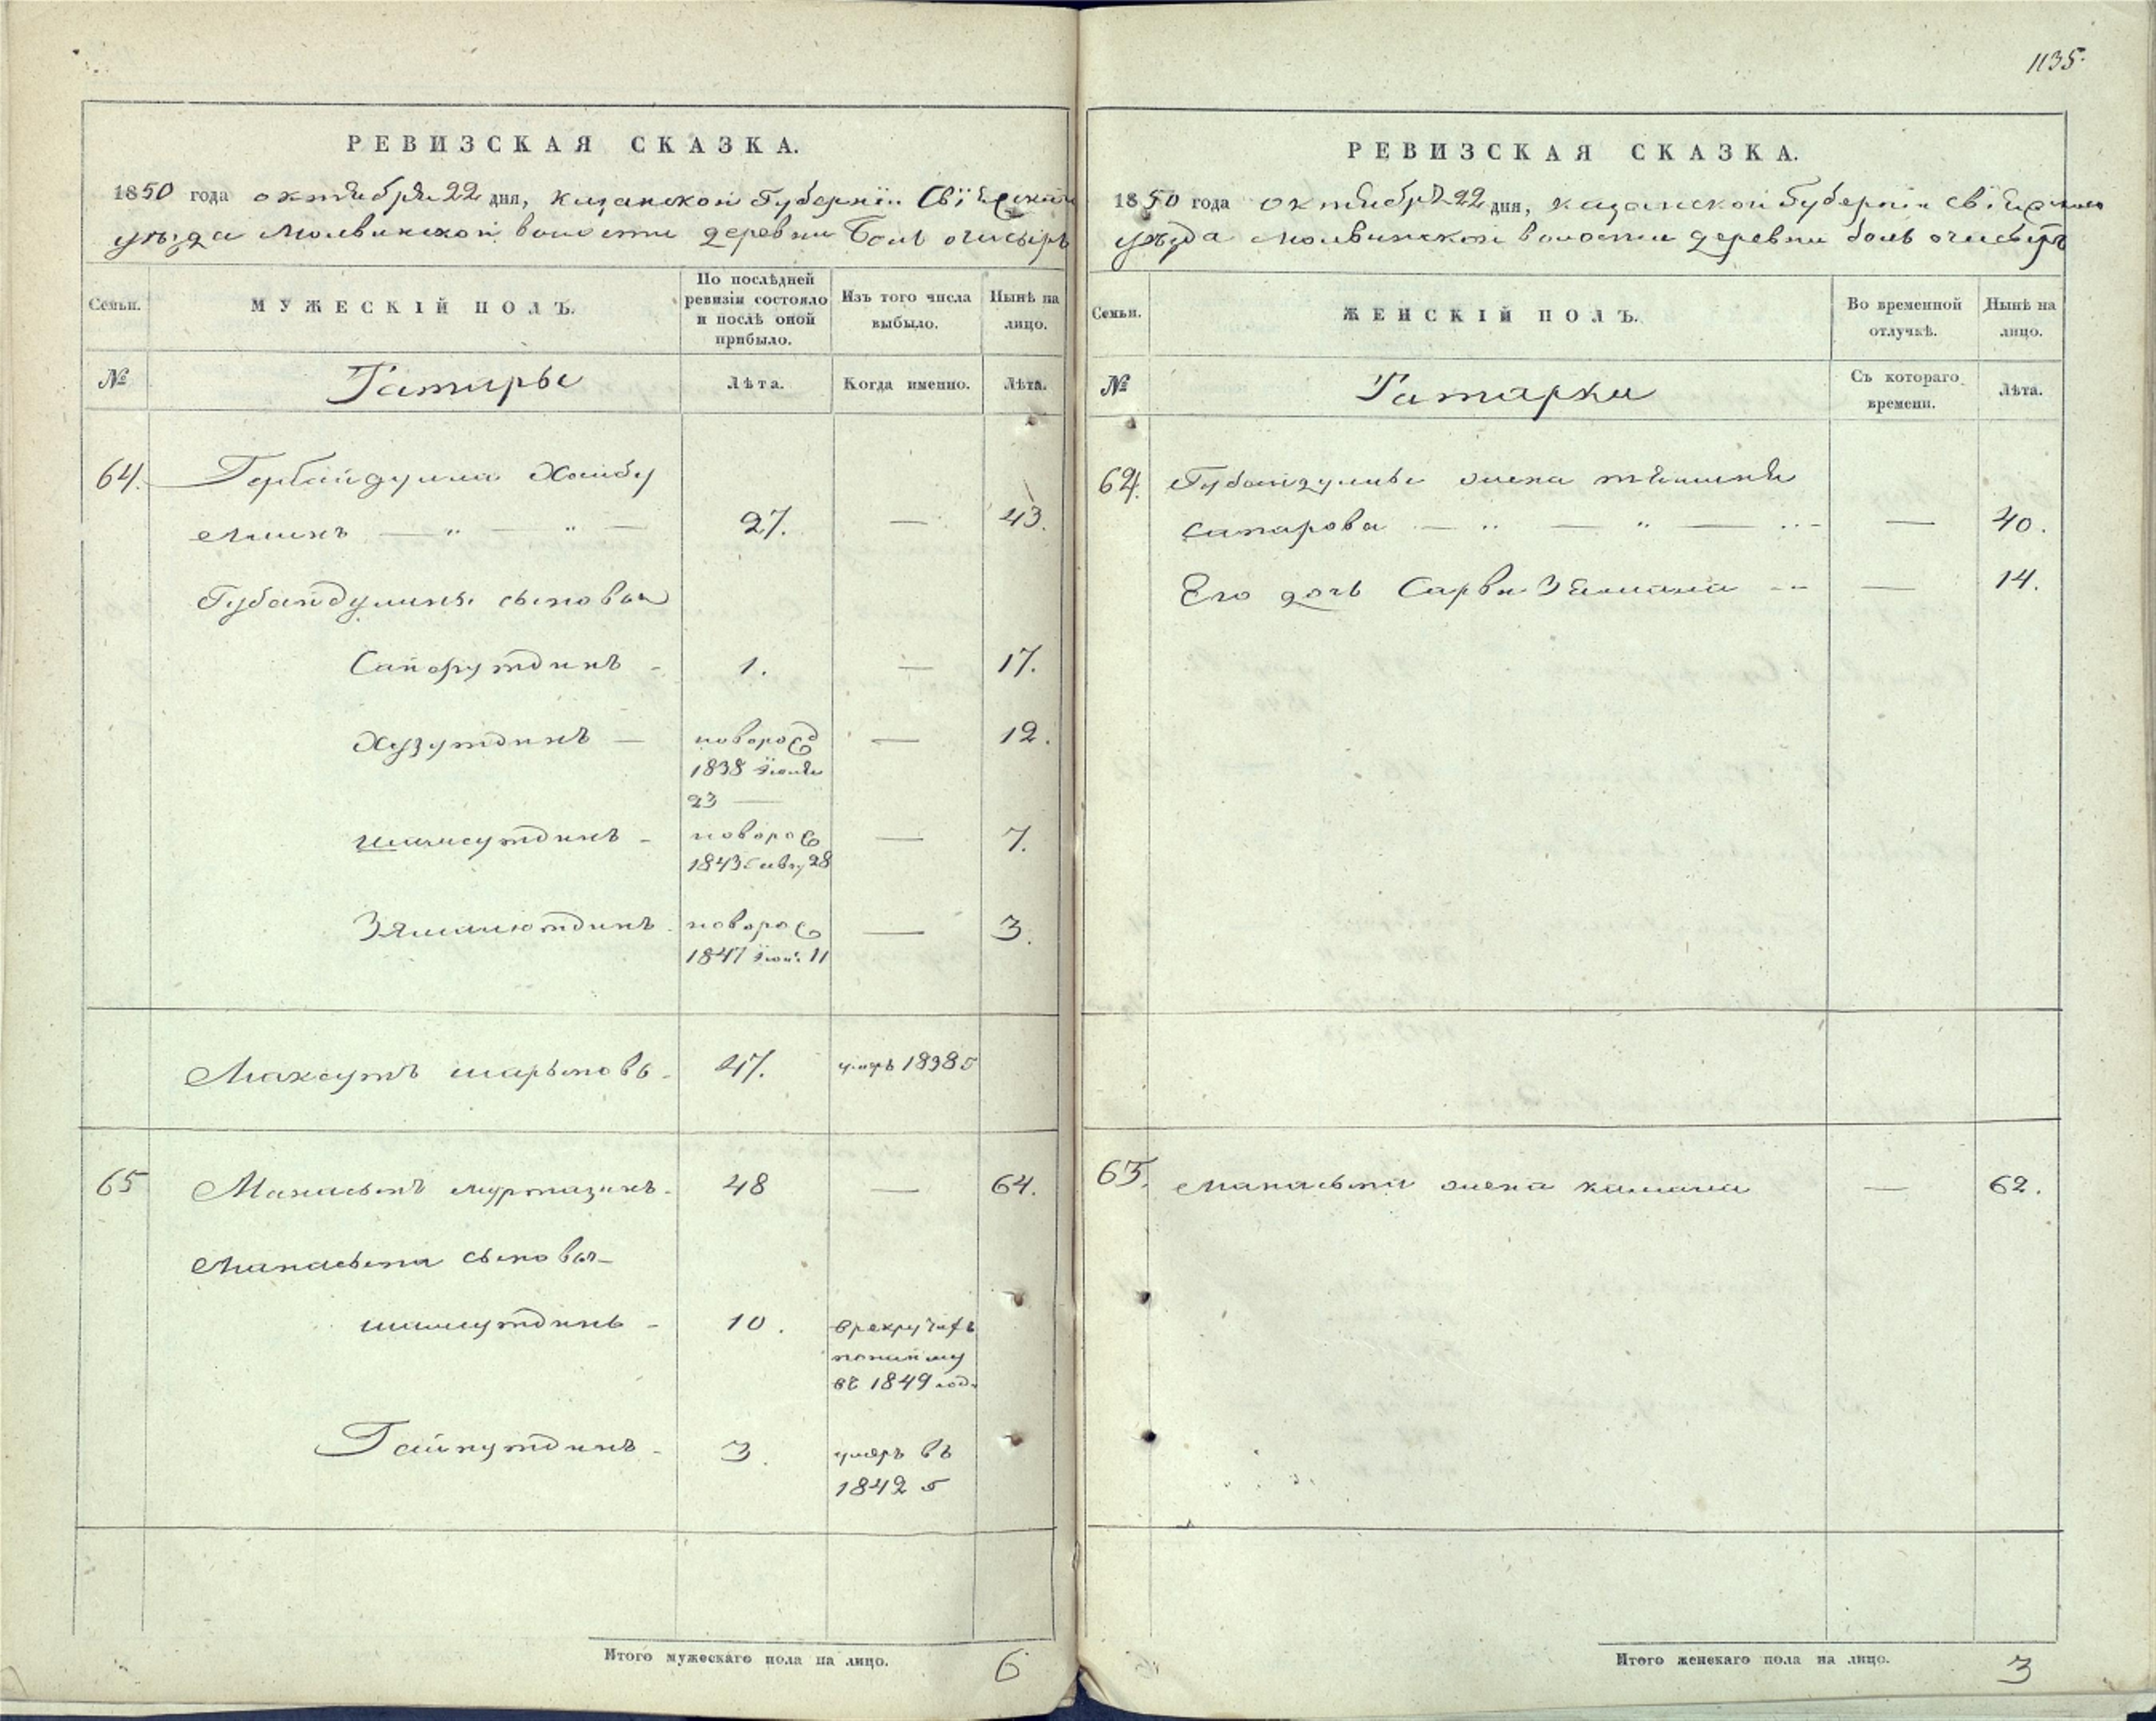 1135.
РЕВИЗСКАЯ СКАЗКА.
1850 года октября 22 дня, Казанской Губернiи Свiяжскаго
уѣзда Молвинской волости деревни Бол очисыръ
Семьи.
МУЖЕСКIЙ ПОЛЪ.
По послѣдней ревизiи состояло и послѣ оной прибыло.
Изъ того числа выбыло.
Нынѣ на лицо.
№
Татары
Лѣта.
Когда именно.
Лѣта.
64. Губайдулла Хаибу
27. — 43.
Губайдуллины сыновья
Сайфутдинъ - 1. — 17.
Хузутдинъ — новорожд — 12.
1838 Iюня
23 —
шамсутдинъ - новорож — 7.
1843 28
Зямалютдинъ новорож — 3.
1847 11
Максутъ шарыповъ 47. умеръ 1838
65 Манасыпъ муртазинъ 48 — 64.
Манасыпа сыновья
10. в рекруты
въ 1849 год
Гайнутдинъ - 3. умеръ въ
1842
Итого мужескаго пола на лицо. 6
РЕВИЗСКАЯ СКАЗКА.
1850 года октября 22 дня, казанской Губернiи свiяжскаго
уѣзда молвинской волости деревни бол очисыръ
Семьи.
ЖЕНСКIЙ ПОЛЪ.
Во временной отлучкѣ.
Нынѣ на лицо.
№
Татарки
Съ котораго времени.
Лѣта.
64. Губайдуллы жена
сапарова — 40.
Его дочь Сарви — 14.
65. манасыпа жена — 62.
Итого женскаго пола на лицо. 3